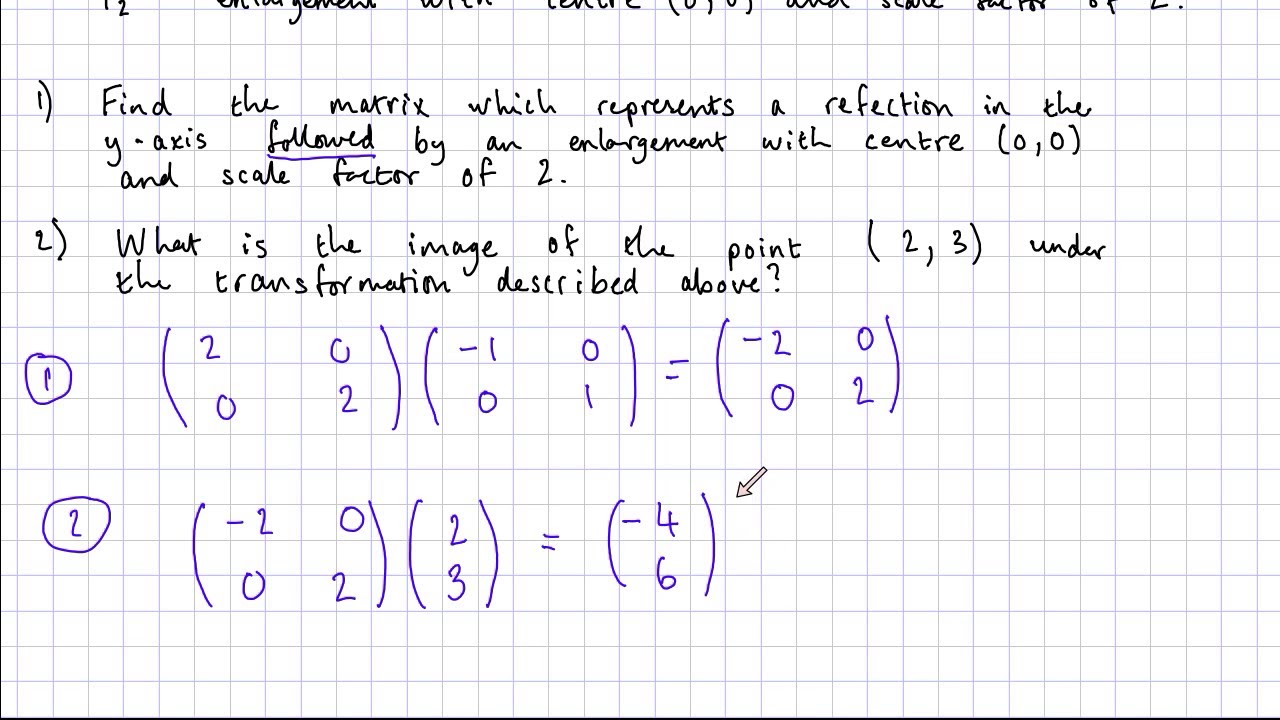 T2 enlargement with centre (0,0) and scale factor of 2.
1) Find the matrix which represents a refection in the
y-axis followed by an enlargement with centre (0,0)
and scale factor of 2.
2) What is the image of the point (2, 3) under
the transformation described above?
1 ( 2 0 ) ( -1 0 ) = ( -2 0 )
( 0 2 ) ( 0 1 ) ( 0 2 )
2 ( -2 0 ) ( 2 ) = ( -4 )
( 0 2 ) ( 3 ) ( 6 )